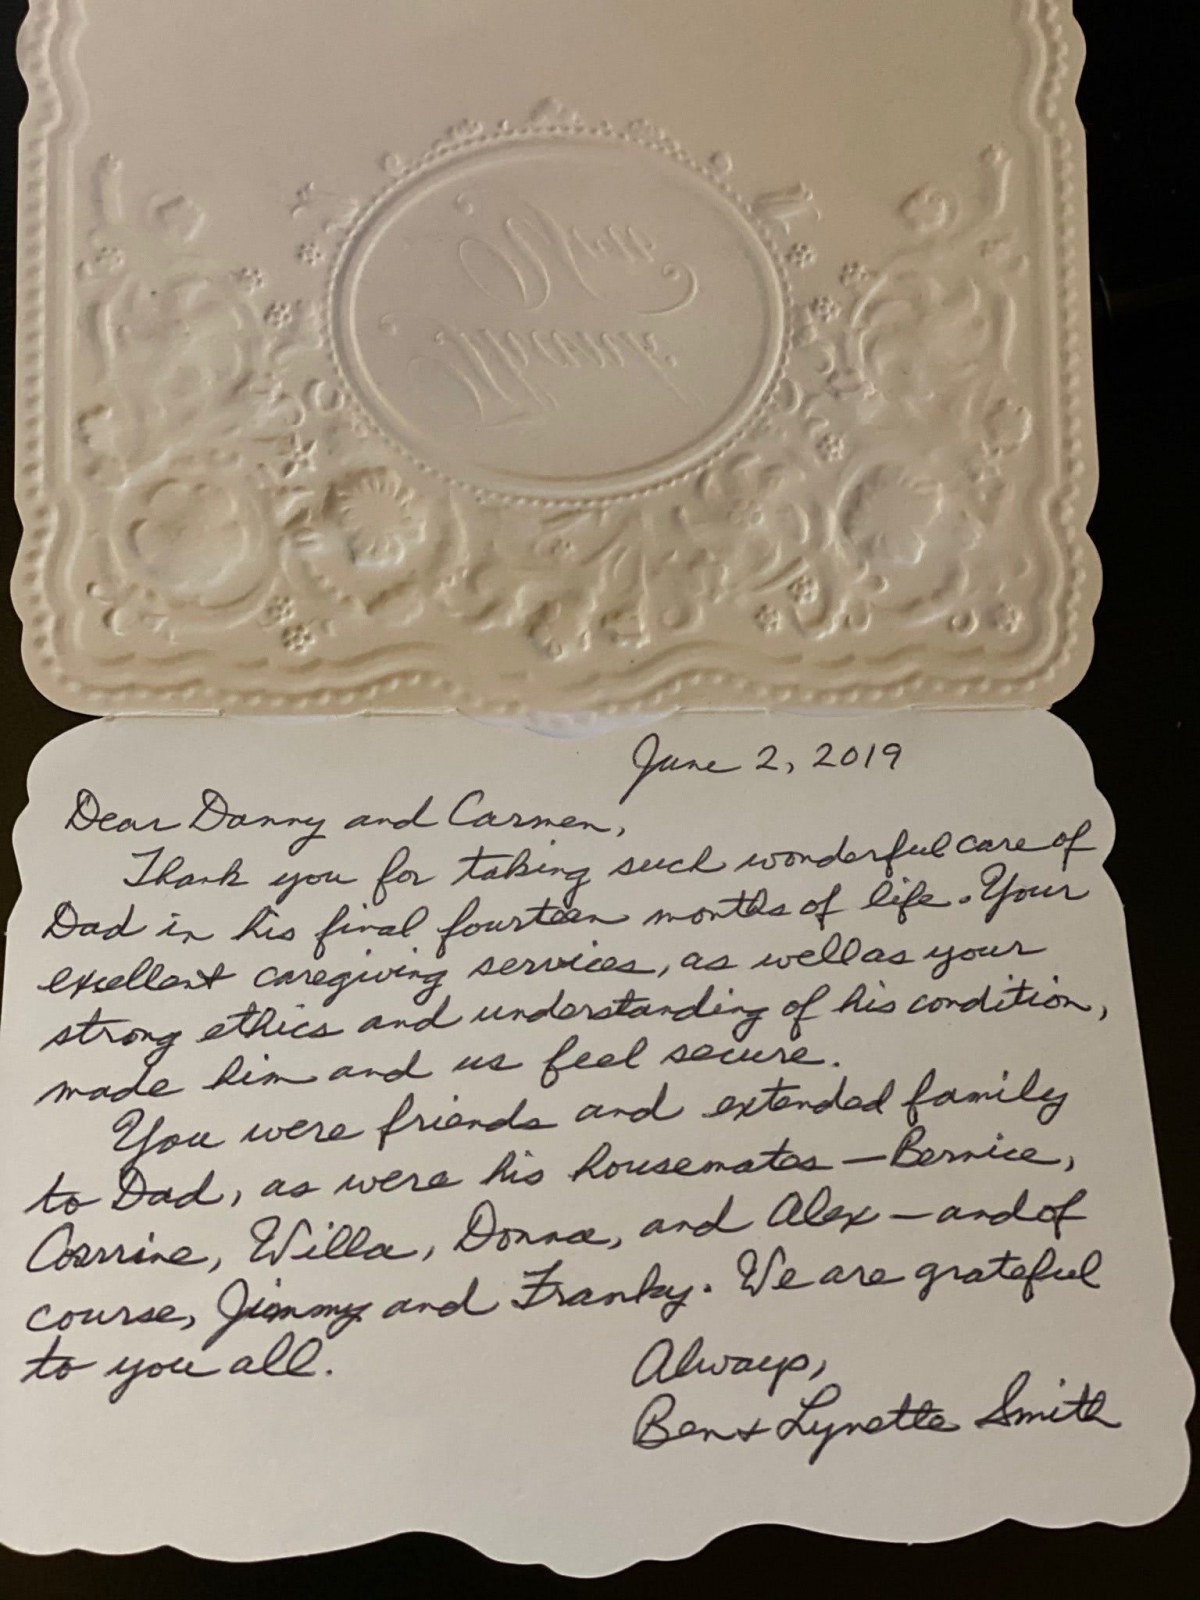 Thank
You
June 2, 2019
Dear Danny and Carmen,
Thank you for taking such wonderful care of
Dad in his final fourteen months of life. Your
excellent caregiving services, as well as your
strong ethics and understanding of his condition,
made him and us feel secure.
You were friends and extended family
to Dad, as were his housemates – Bernice,
Corrine, Willa, Donna, and Alex – and of
course, Jimmy and Franky. We are grateful
to you all.
Always,
Ben & Lynette Smith